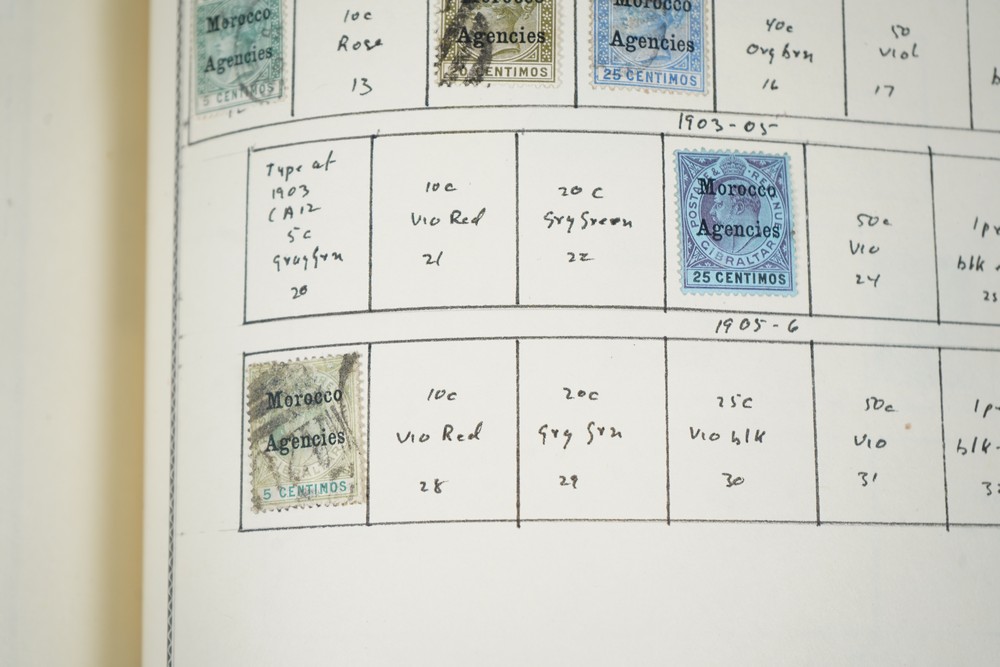 Morocco
Agencies
5 CENTIMOS
10c
Rose
13
Morocco
Agencies
CENTIMOS
Morocco
Agencies
25 CENTIMOS
40c
Org brn
16
50
Viol
17
1903-05
Type of
1903
CA12
5c
gray Grn
20
10c
Vio Red
21
20c
Gry Green
22
POSTAGE & REVENUE
Morocco
Agencies
GIBRALTAR
25 CENTIMOS
50c
Vio
24
blk
1905-6
Morocco
Agencies
5 CENTIMOS
10c
Vio Red
28
20c
Gry Grn
29
25c
Vio blk
30
50c
Vio
31
blk